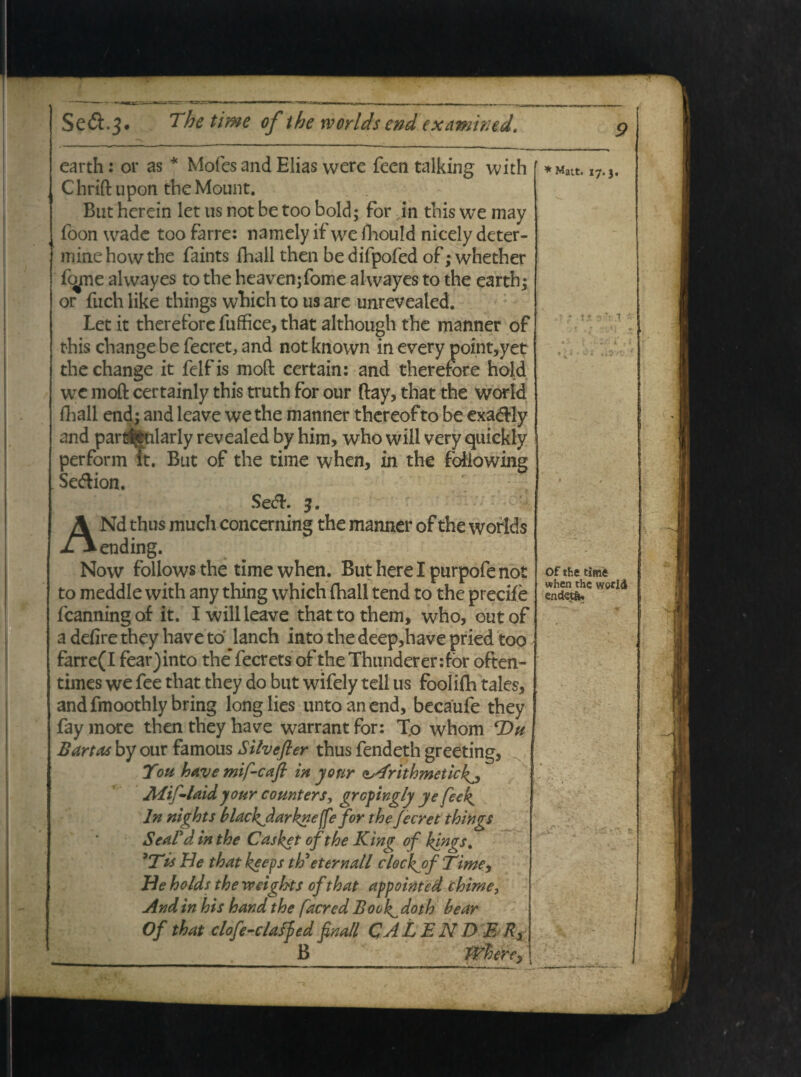 Sect.3. The time of the worlds end examined. 9
earth: or as * Moſes and Elias were ſeen talking with
Chriſt upon the Mount.
* Matt. 17.3.
But herein let us not be too bold; for in this we may
ſoon wade too farre: namely if we ſhould nicely deter-
mine how the ſaints ſhall then be diſpoſed of; whether
ſome alwayes to the heaven;ſome alwayes to the earth;
or ſuch like things which to us are unrevealed.
Let it therefore ſuffice, that although the manner of
this change be ſecret, and not known in every point,yet
the change it ſelf is moſt certain: and therefore hold
we moſt certainly this truth for our ſtay, that the world
ſhall end; and leave we the manner thereof to be exactly
and particularly revealed by him, who will very quickly
perform it. But of the time when, in the following
Section.
Sect. 3.
ANd thus much concerning the manner of the worlds
ending.
Now follows the time when. But here I purpoſe not
to meddle with any thing which ſhall tend to the preciſe
ſcanning of it. I will leave that to them, who, out of
a deſire they have to lanch into the deep,have pried too
farre(I fear)into the ſecrets of the Thunderer:for often-
times we ſee that they do but wiſely tell us fooliſh tales,
and ſmoothly bring long lies unto an end, becauſe they
ſay more then they have warrant for: To whom Du
Bartas by our famous Silveſter thus ſendeth greeting,
Of the time
when the world
endeth.
You have miſ-caſt in your Arithmetick,
Miſ-laid your counters, gropingly ye ſeek
In nights black darkneſſe for the ſecret things
Seal'd in the Casket of the King of kings.
'Tis He that keeps th' eternall clock of Time,
He holds the weights of that appointed chime,
And in his hand the ſacred Book doth bear
Of that cloſe-claſped finall CALENDER,
B Where,